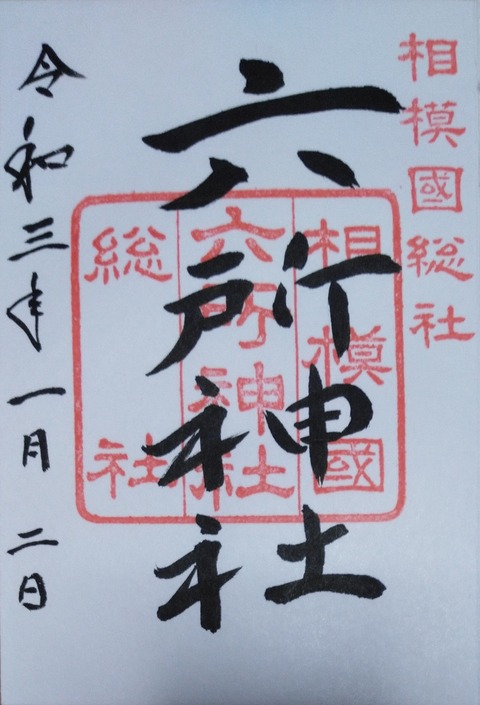 相模國総社
六所神社
相模國
六所神社
総社
令和三年一月二日